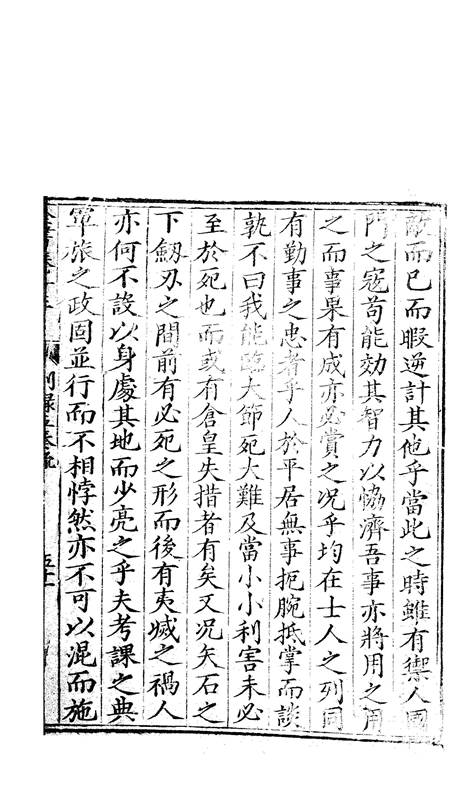 敵而已而暇逆計其他乎當此之時雖有禦人國
門之寇苟能効其智力以恊濟吾事亦將用之用
之而事果有成亦必賞之况乎均在士人之列同
有勤事之忠者乎人於平居無事扼腕抵掌而談
孰不曰我能臨大節死大難及當小小利害未必
至於死也而或有倉皇失措者有矣又况矢石之
下劔刃之間前有必死之形而後有夷烕之禍人
亦何不設以身處其地而少亮之乎夫考課之典
軍旅之政固並行而不相悖然亦不可以混而施
别録